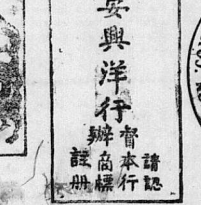 安興洋行
督辦
請認
本行
商標
註冊